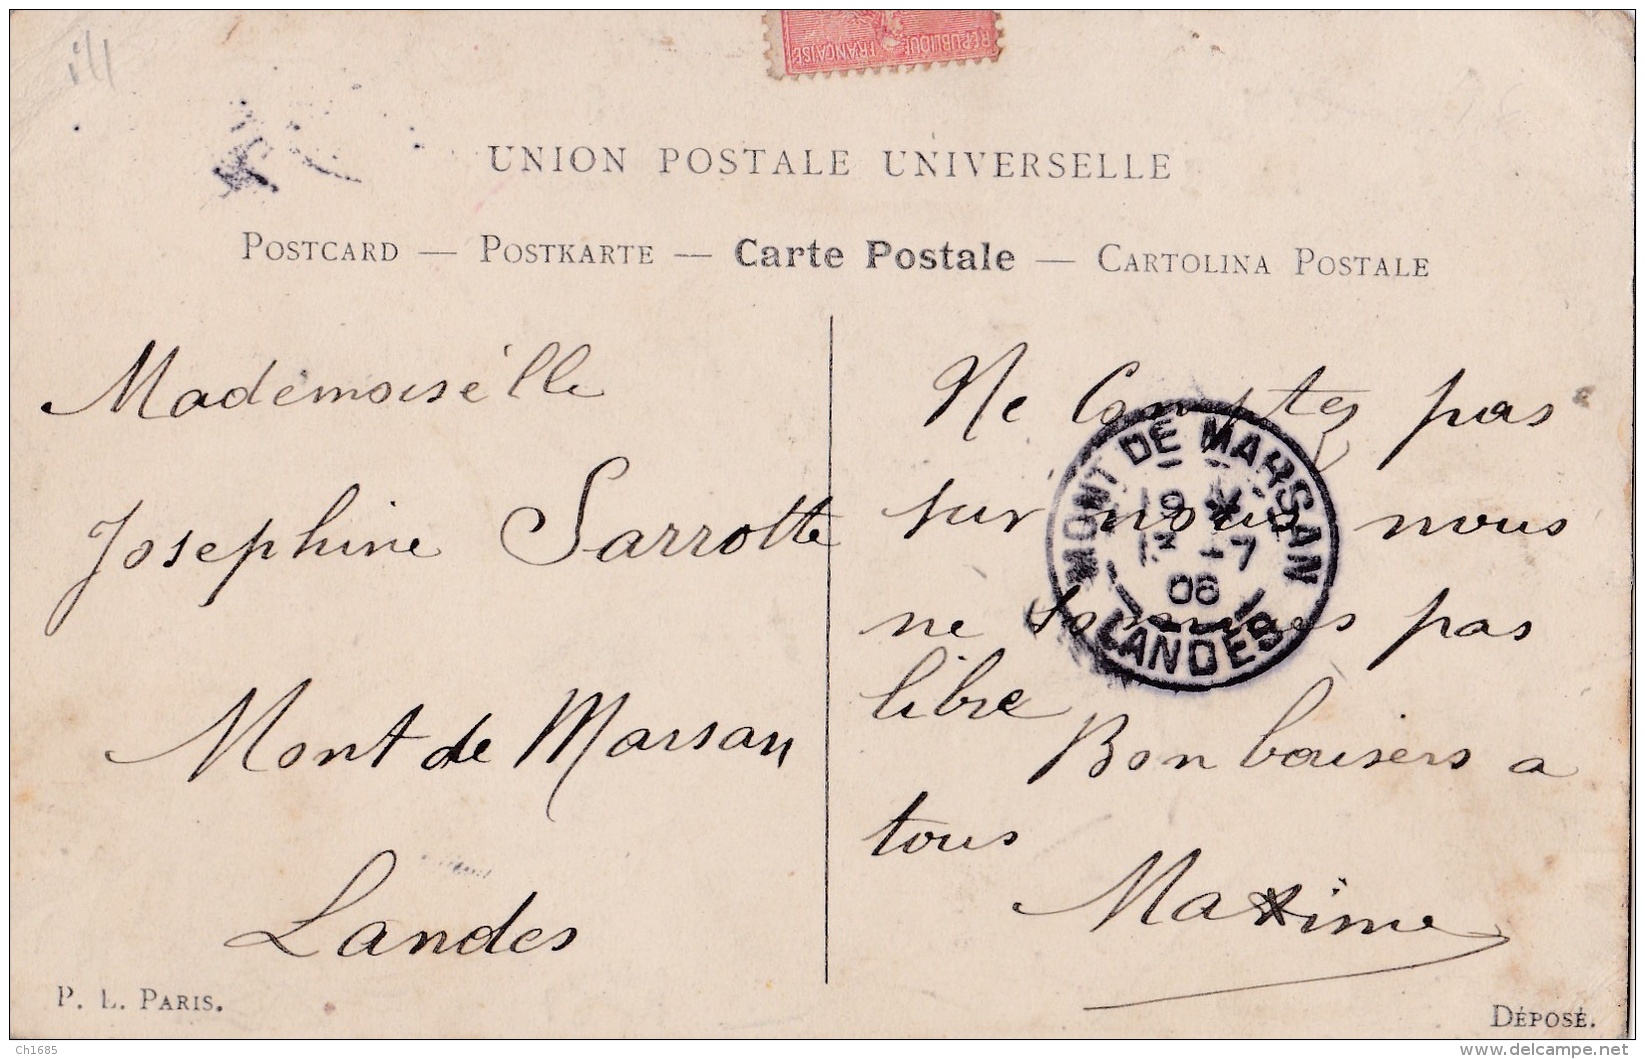 ill
RÉPUBLIQUE FRANÇAISE
UNION POSTALE UNIVERSELLE
POSTCARD — POSTKARTE — Carte Postale — CARTOLINA POSTALE
Mademoiselle
Josephine Sarrotte
Mont de Marsan
Landes
P. L. PARIS.
Ne Comptes pas
sur nous nous
ne sommes pas
libre
Bon baisers a
tous
Maxime
MONT DE MARSAN
13 -7
06
LANDES
DÉPOSÉ.
Ch1685
delcampe.net